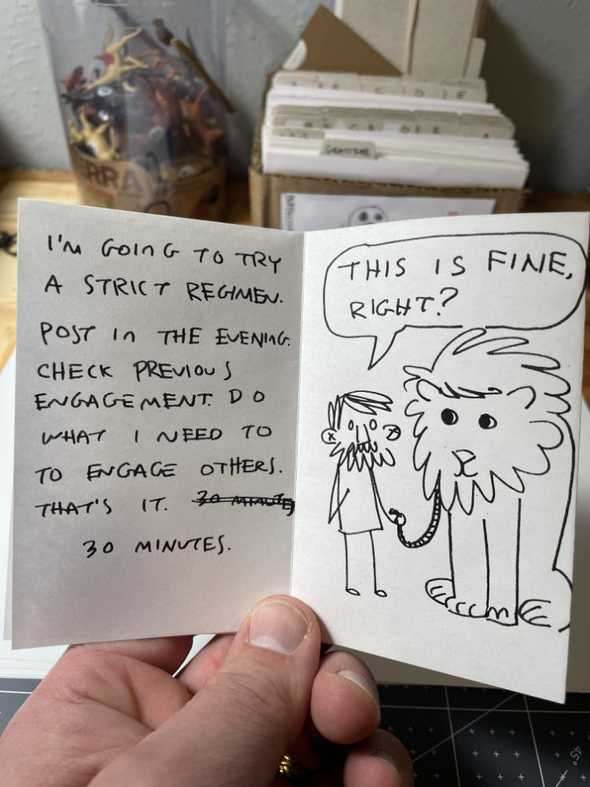 I'M GOING TO TRY
A STRICT REGIMEN.
POST IN THE EVENING.
CHECK PREVIOUS
ENGAGEMENT. DO
WHAT I NEED TO
TO ENGAGE OTHERS.
THAT'S IT. 30 MINUTES
30 MINUTES.
THIS IS FINE,
RIGHT?